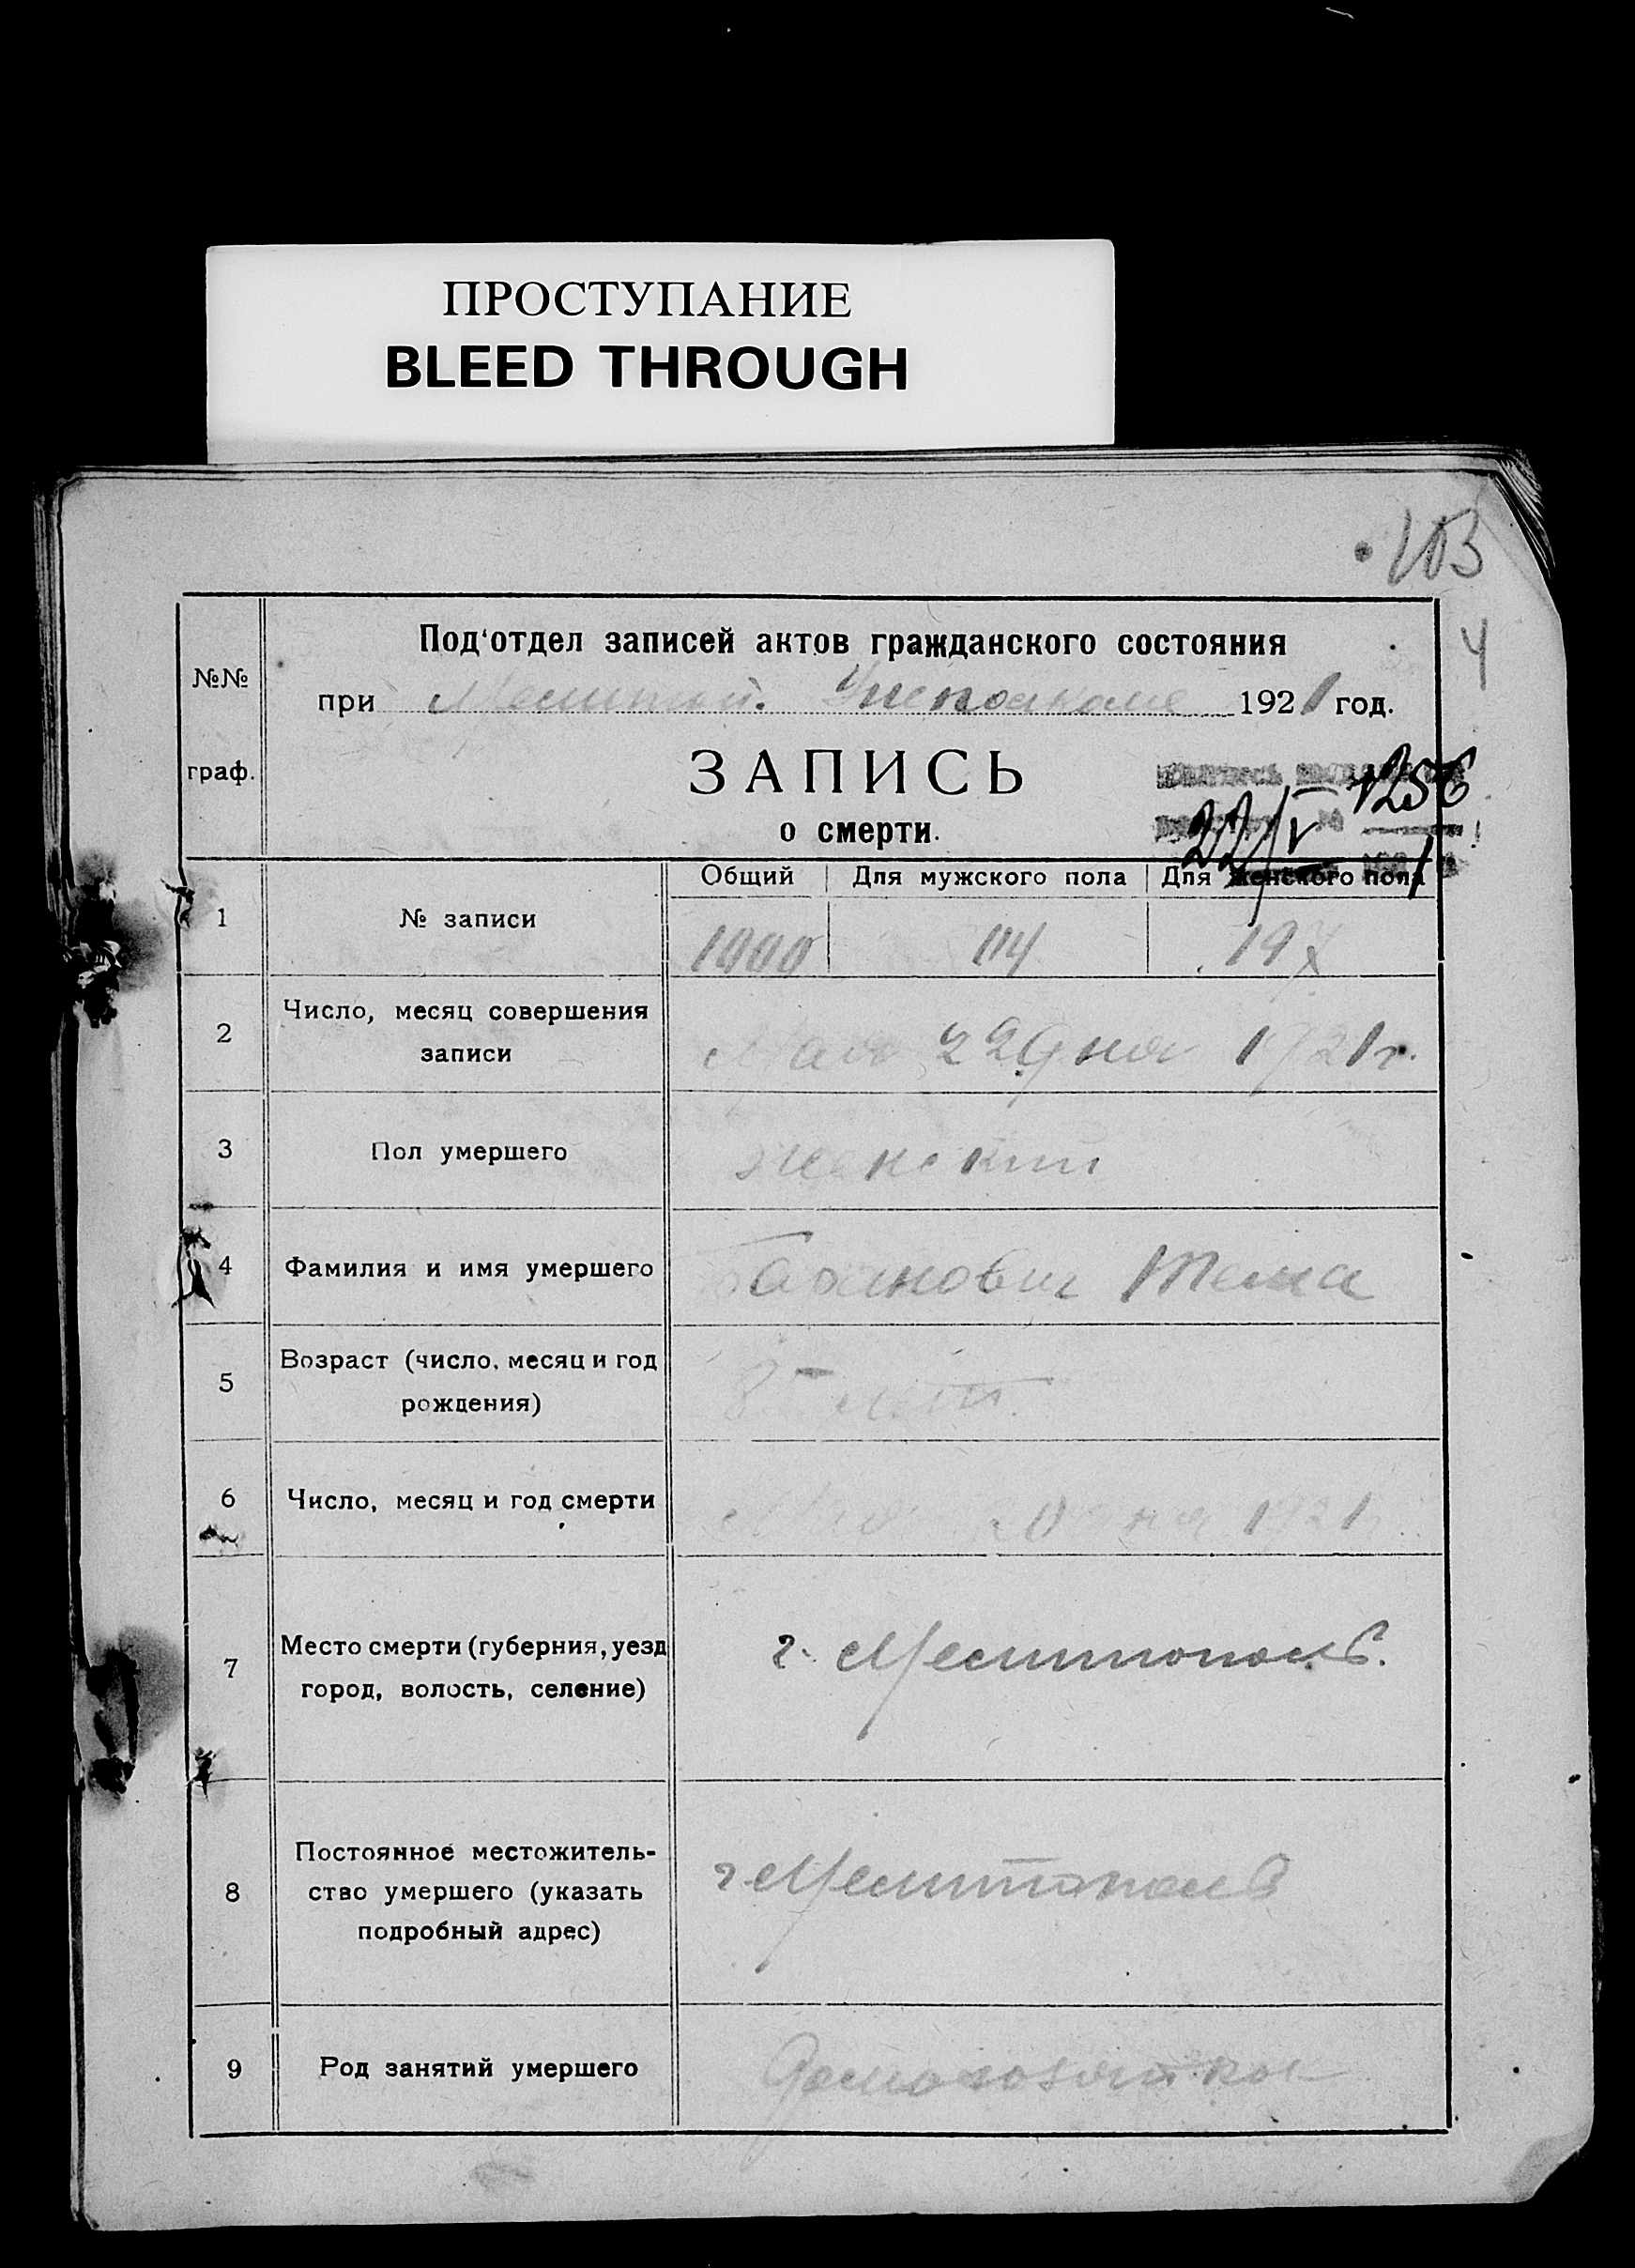 ПРОСТУПАНИЕ
BLEED THROUGH
103
4
Под‘отдел записей актов гражданского состояния
№№
при Мелитоп. 1921 год.
граф.
ЗАПИСЬ
1256
о смерти.
22/V
Общий Для мужского пола Для женского пола
1 № записи
114 197
2 Число, месяц совершения
записи
Мая 22 дня 1921 г.
3 Пол умершего женский
4 Фамилия и имя умершего
5 Возраст (число, месяц и год
рождения)
лет
6 Число, месяц и год смерти
Мая дня 1921
7 Место смерти (губерния, уезд
город, волость, селение)
г. Мелитополь.
8 Постоянное местожитель-
ство умершего (указать
подробный адрес)
г. Мелитополь
9 Род занятий умершего
Домохозяйка